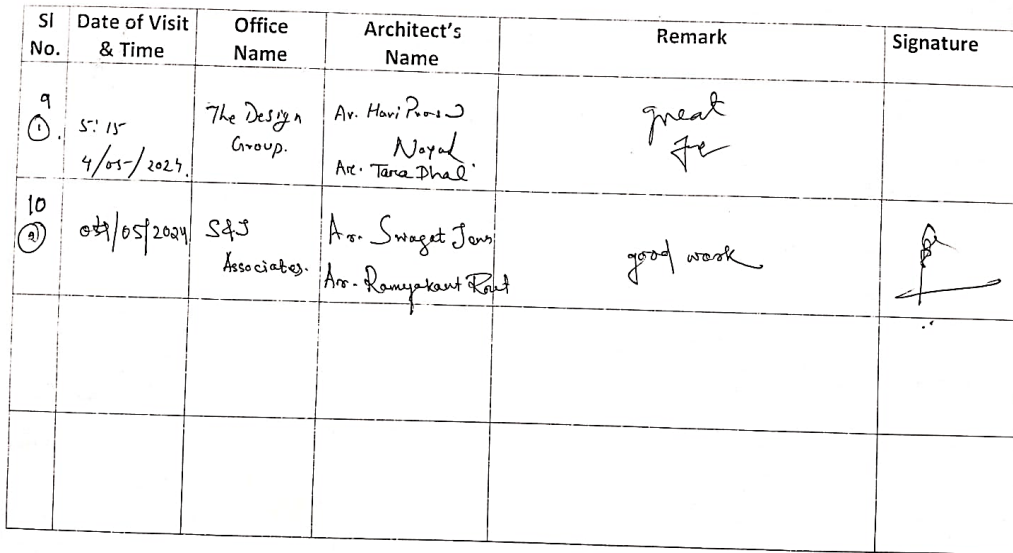 Sl No.
Date of Visit & Time
Office Name
Architect's Name
Remark
Signature
9
①.
5:15
4/05/2024.
The Design
Group.
Ar. Hari Prasad
Nayak
Ar. Tara Dhal
great
10
②
/05/2024
S&J
Associates.
Ar. Swagat Jena
Ar. Ramyakant Rout
good work